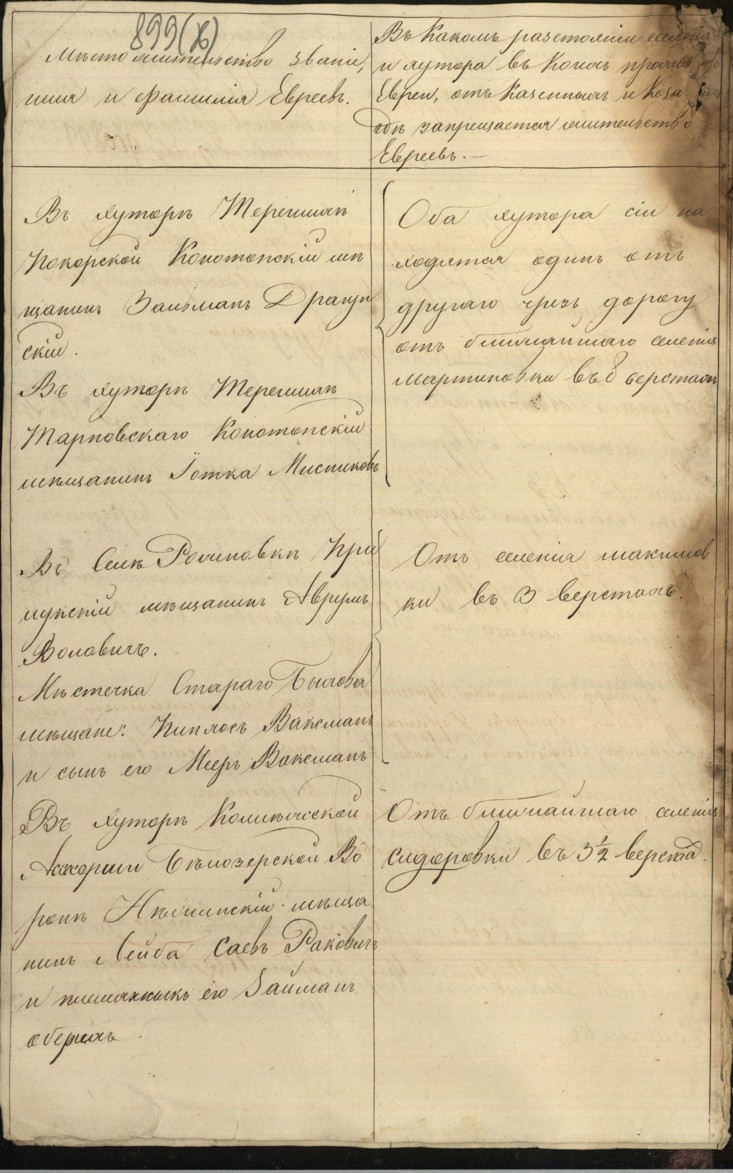 899(б)
Мѣсто жительство званіе,
имя и фамилія Евреевъ.
Въ какомъ разстояніи селенія
и хутора въ коихъ прожив
Евреи, отъ Казенныхъ и Коза
гдѣ запрещается жительство
Евреевъ.—
Въ хуторѣ
Конотопскій мѣ
щанинъ Залманъ Драгун
скій.
Въ хуторѣ
Тарновскаго Конотопскій
мѣщанинъ Іотка
Оба хутора сіи на
ходятся одинъ отъ
другаго чрезъ дорогу
отъ ближайшаго селенія
Мартиновки въ верстахъ
Въ Селѣ При
лукскій мѣщанинъ Аврумъ
Воловичъ.
Мѣстечка Стараго Быхова
мѣщане: Ваксманъ
и сынъ его Мееръ Ваксманъ
Отъ селенія Максимов
ки въ 3 верстахъ.
Въ хуторѣ
Ассесорши Бѣлозерской Во
ронѣ Нѣжинскій мѣща
нинъ Лейба Раковичъ
и племянникъ его Займанъ
Отъ ближайшаго селенія
Сидоровки въ 3½ верста